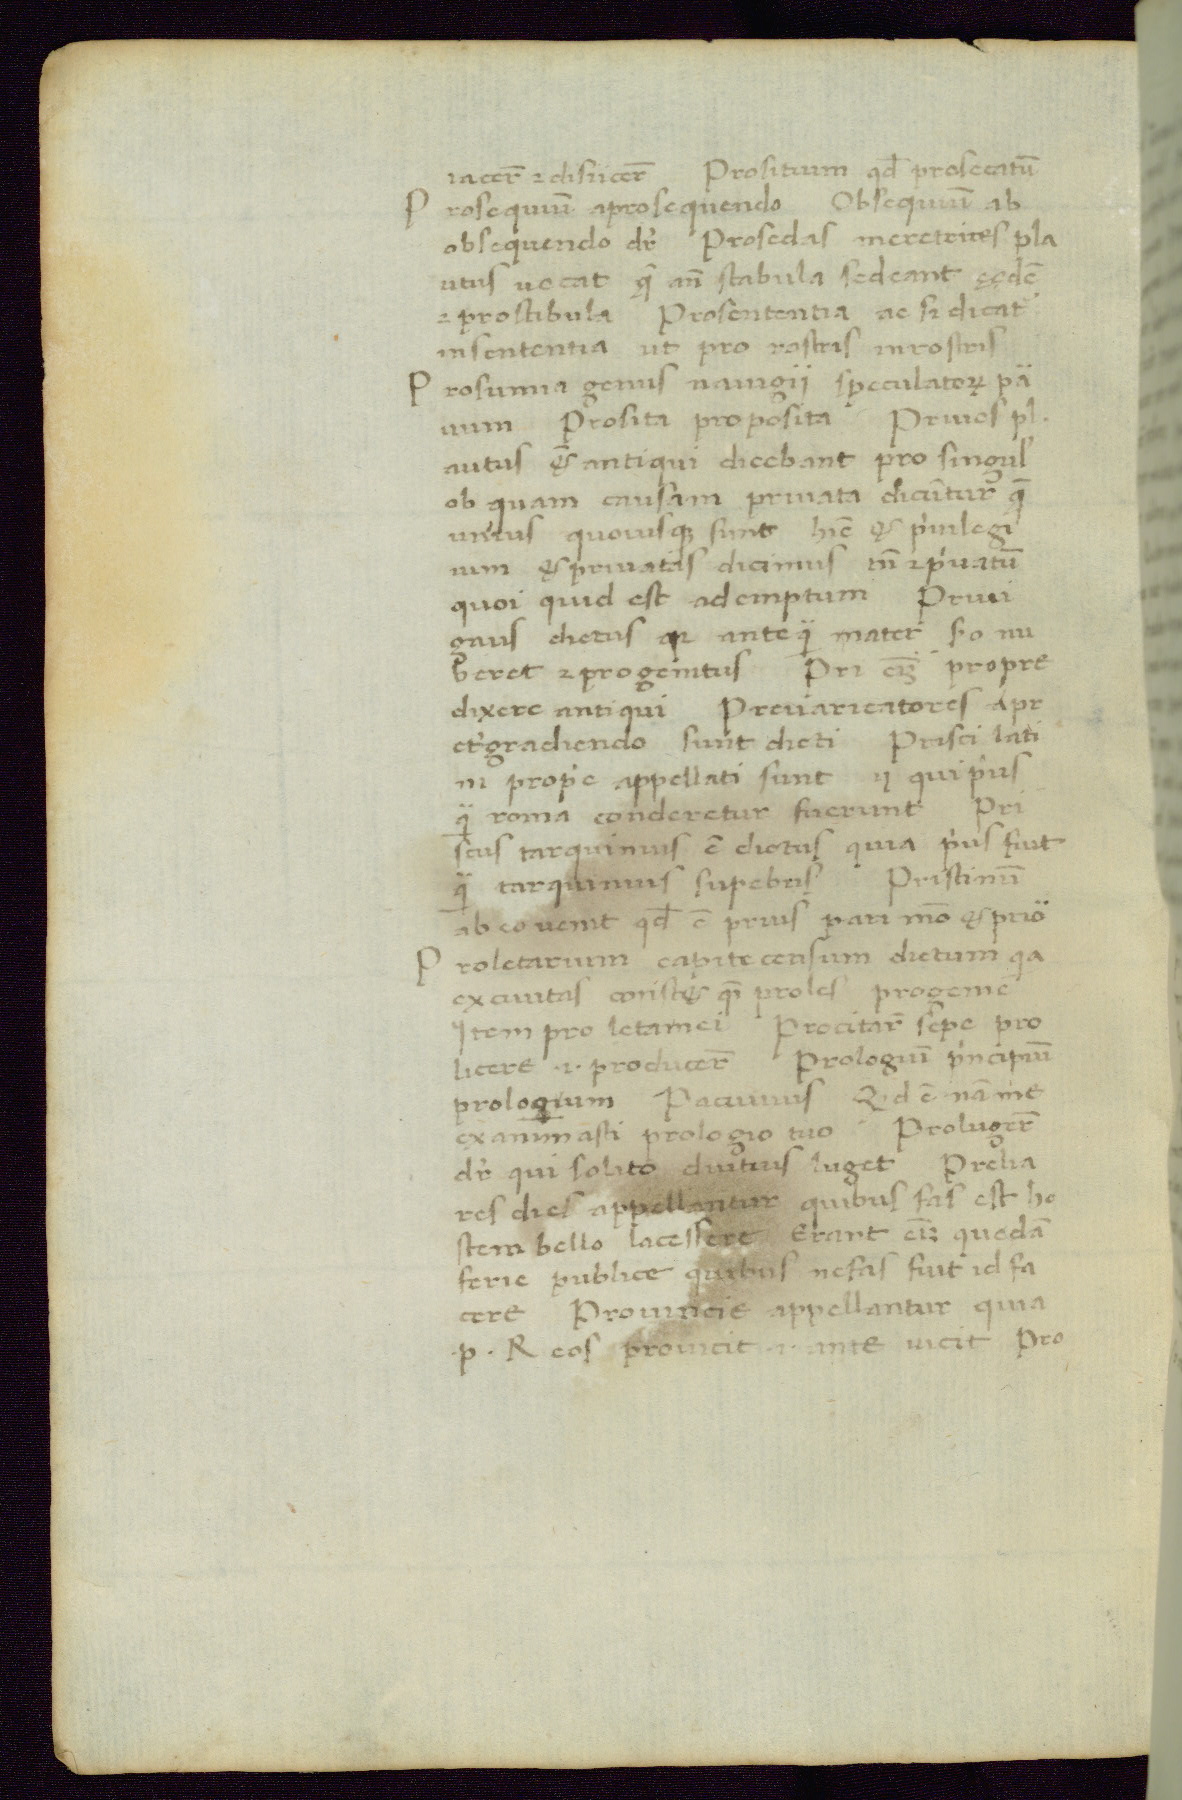 iacer̄ ⁊ disiicer̄ Prosituum qd̄ prosecatū
Prosequiuū aprosequendo Obsequiuū ab
obsequendo dr̄ Prosedas meretrices pla
utus uocat q̄ an̄ stabula sedeant ęędē
⁊ prostibula Prosententia ac si dicat̄
insententia ut pro rostris inrostris
Prosumia genus nauigij speculatoꝝ pā
uum Prosita proposita Priuos pl.
autus & antiqui dicebant pro singul
ob quam causam priuata dicūtur q̄
unius quoiusqꝫ sunt hīc & priuilegi
uum & priuatas dicimus tn̄ ⁊ p̓uatū
quoi quid est ademptum Priui
gnus dictus qꝛ anteq̄ mater s̓o nu
beret ⁊ progenitus Pri eīꝫ propre
dixere antiqui Preuaricatores a pr
et̓gradiendo sunt dicti Prisci lati
ni prop̓e appellati sunt ij qui p̓us
q̄ roma conderetur fuerunt Pri
scus tarquinius ē dictus quia p̓us fuit
q̄ tarquinius supebus Pristinū
ab eo uenit qd̄ ē prius pari mō & priō
Proletarium capitecensum dictum qa
exciuitas const& q̄ proles progenie
Item pro letamei Procitar̄ sępe pro
licere .i. producer̄ Prologiū p̓ncipiū
proloquium Pacuuius Qd ē nā me
exanimasti prologio tuo Proluger̄
dr̄ qui solito diutius luget Prelia
res dies appellantur quibus fas est ho
stem bello lacessere Erant eīꝫ quedā
ferie publice quibus nefas fuit id fa
cere Prouincie appellantur quia
.p. R eos prouicit .i. ante uicit Pro